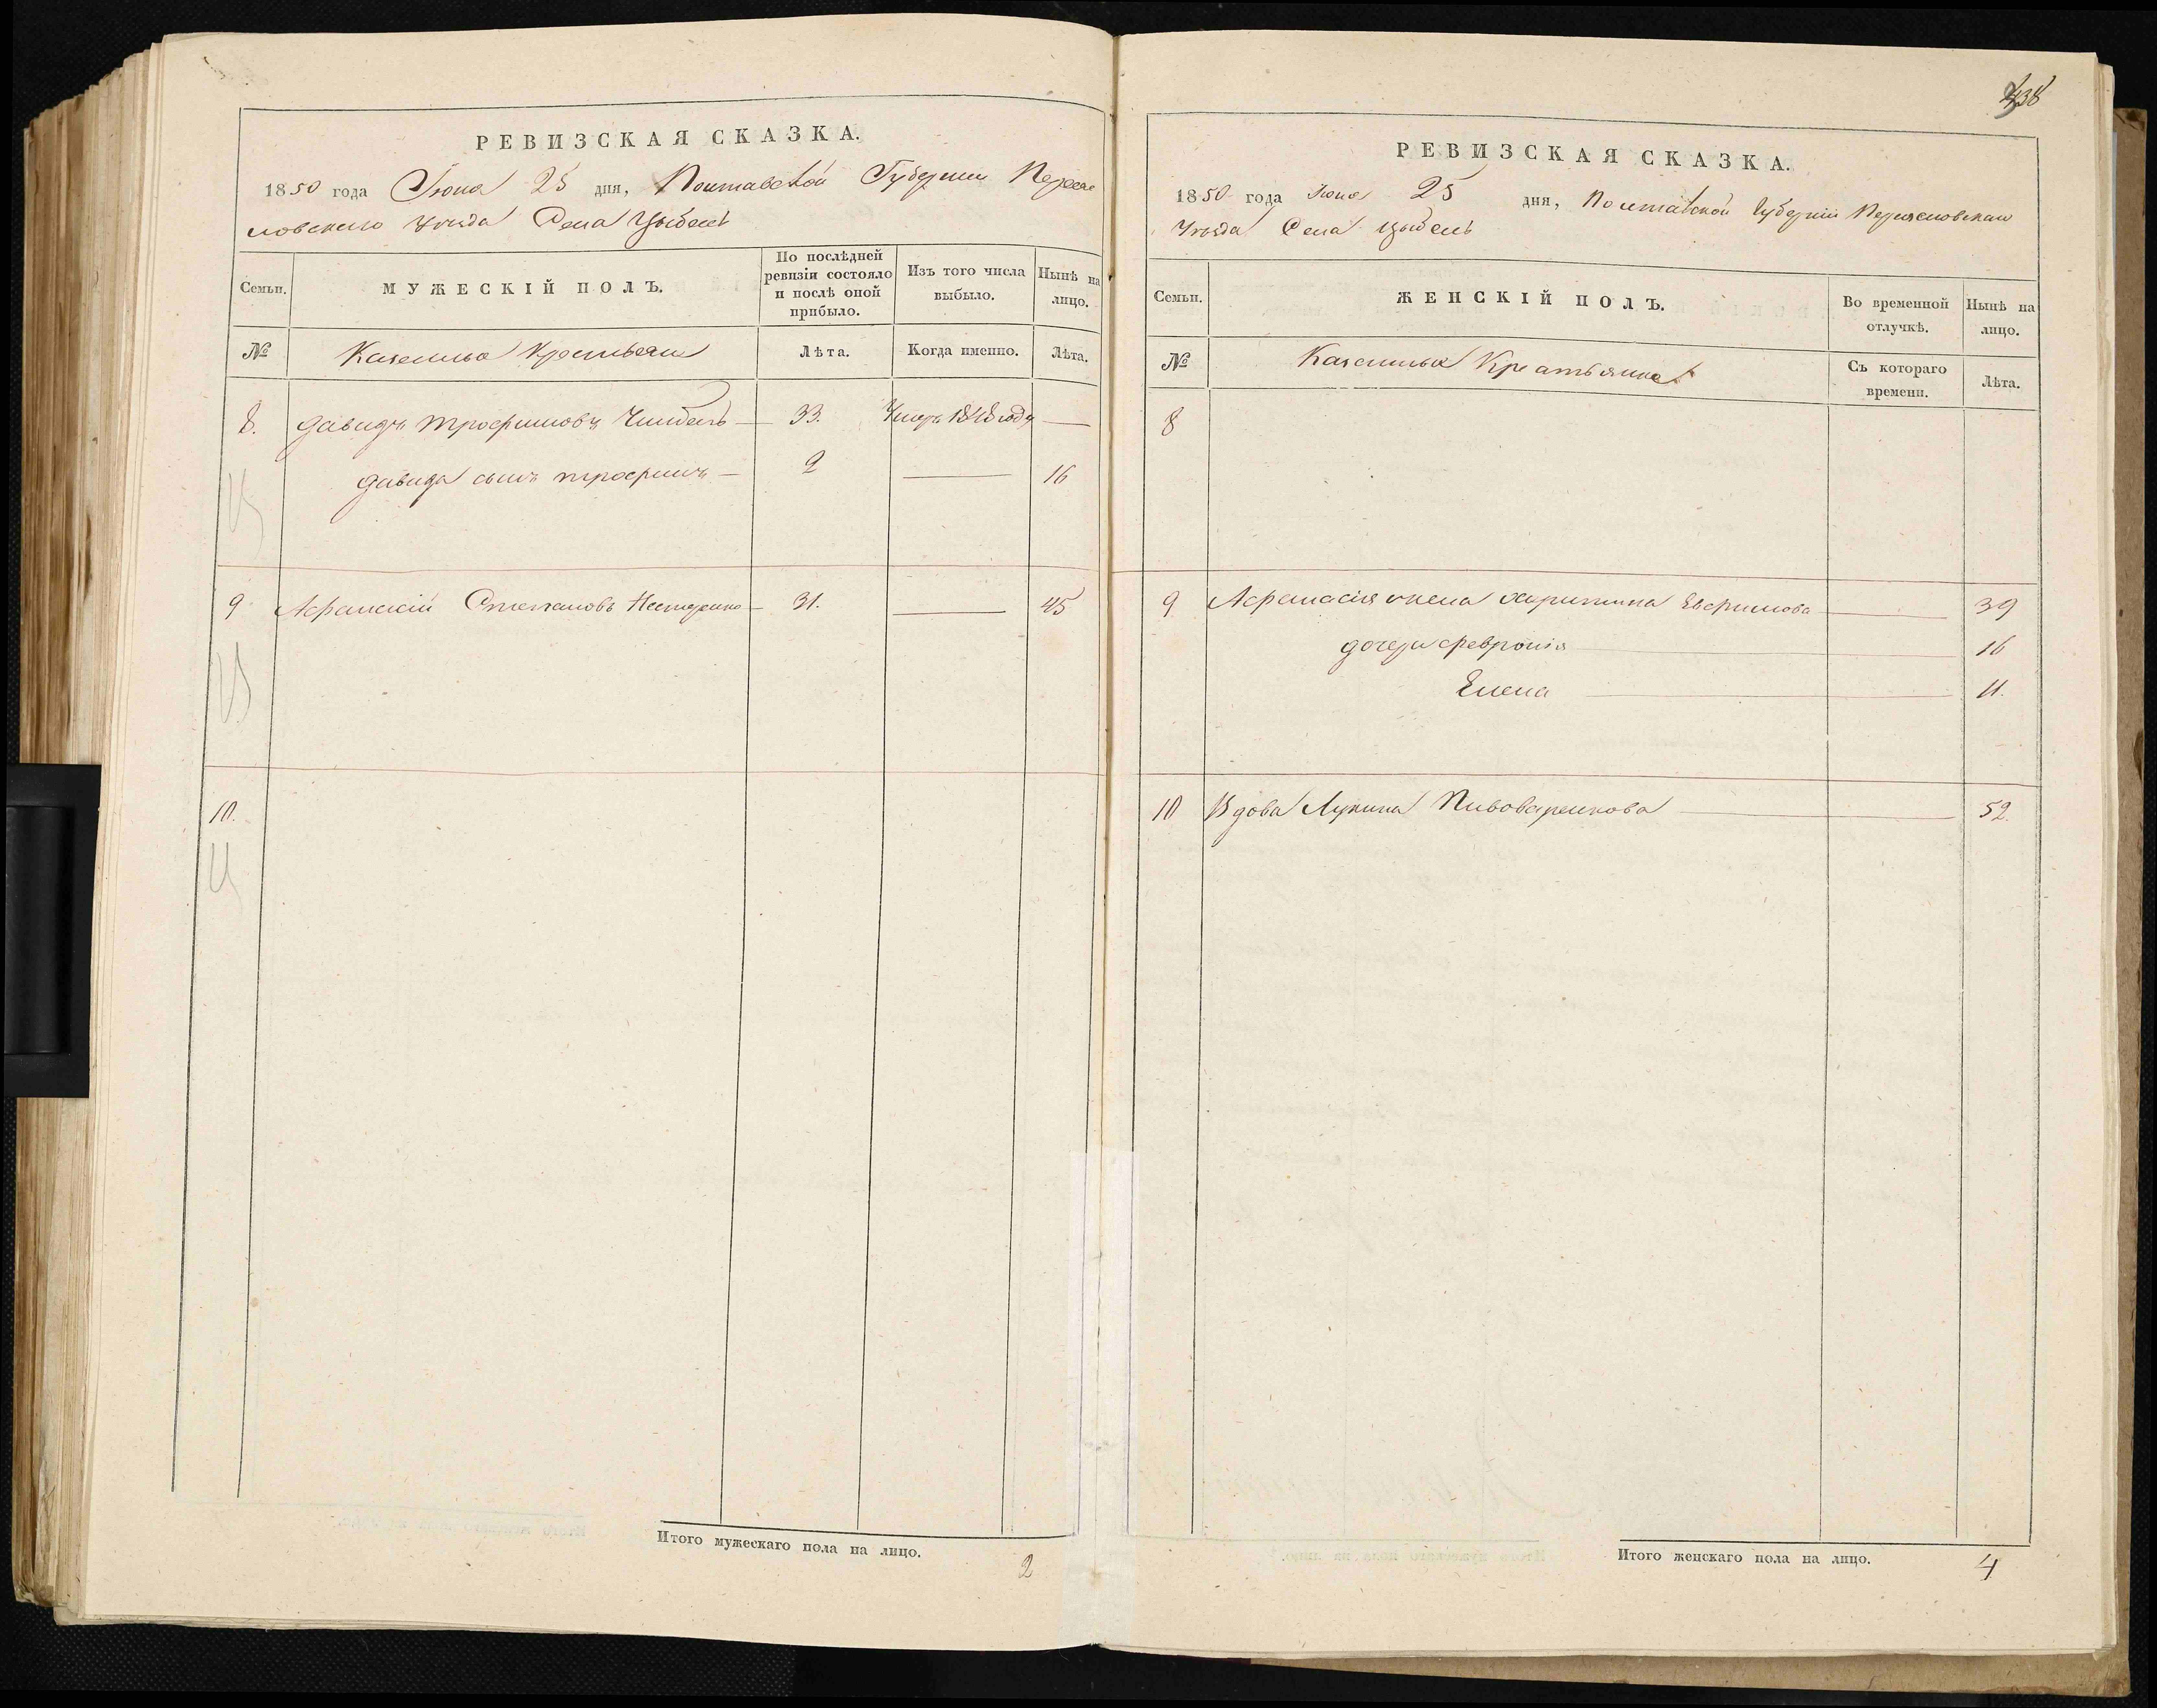 РЕВИЗСКАЯ СКАЗКА.
1850 года Іюня 25 дня, Полтавской Губерніи Перея
словскаго Уѣзда Села Цыбель
Семьи.
МУЖЕСКІЙ ПОЛЪ.
По послѣдней
ревизіи состояло
и послѣ оной
прибыло.
Изъ того числа
выбыло.
Нынѣ на
лицо.
№
Казенные Крестьяне
Лѣта.
Когда именно.
Лѣта.
8. Давидъ Трофимовъ 33. Умеръ 1848 году
Давида сынъ Трофимъ 2 16
9 Афанасій Степановъ Нестеренко 31. 45
10.
Итого мужескаго пола на лицо.
2
438
РЕВИЗСКАЯ СКАЗКА.
1850 года Іюня 25 дня, Полтавской Губерніи Переясловскаго
Уѣзда Села Цыбель
Семьи.
ЖЕНСКІЙ ПОЛЪ.
Во временной
отлучкѣ.
Нынѣ на
лицо.
№
Казенные Крестьянки
Съ котораго
времени.
Лѣта.
8
9 Афанасія жена Харитина Евфимова 39
дочери Февронія 16
Елена 11.
10 Вдова Лукина Пивоваренкова 52.
Итого женскаго пола на лицо.
4